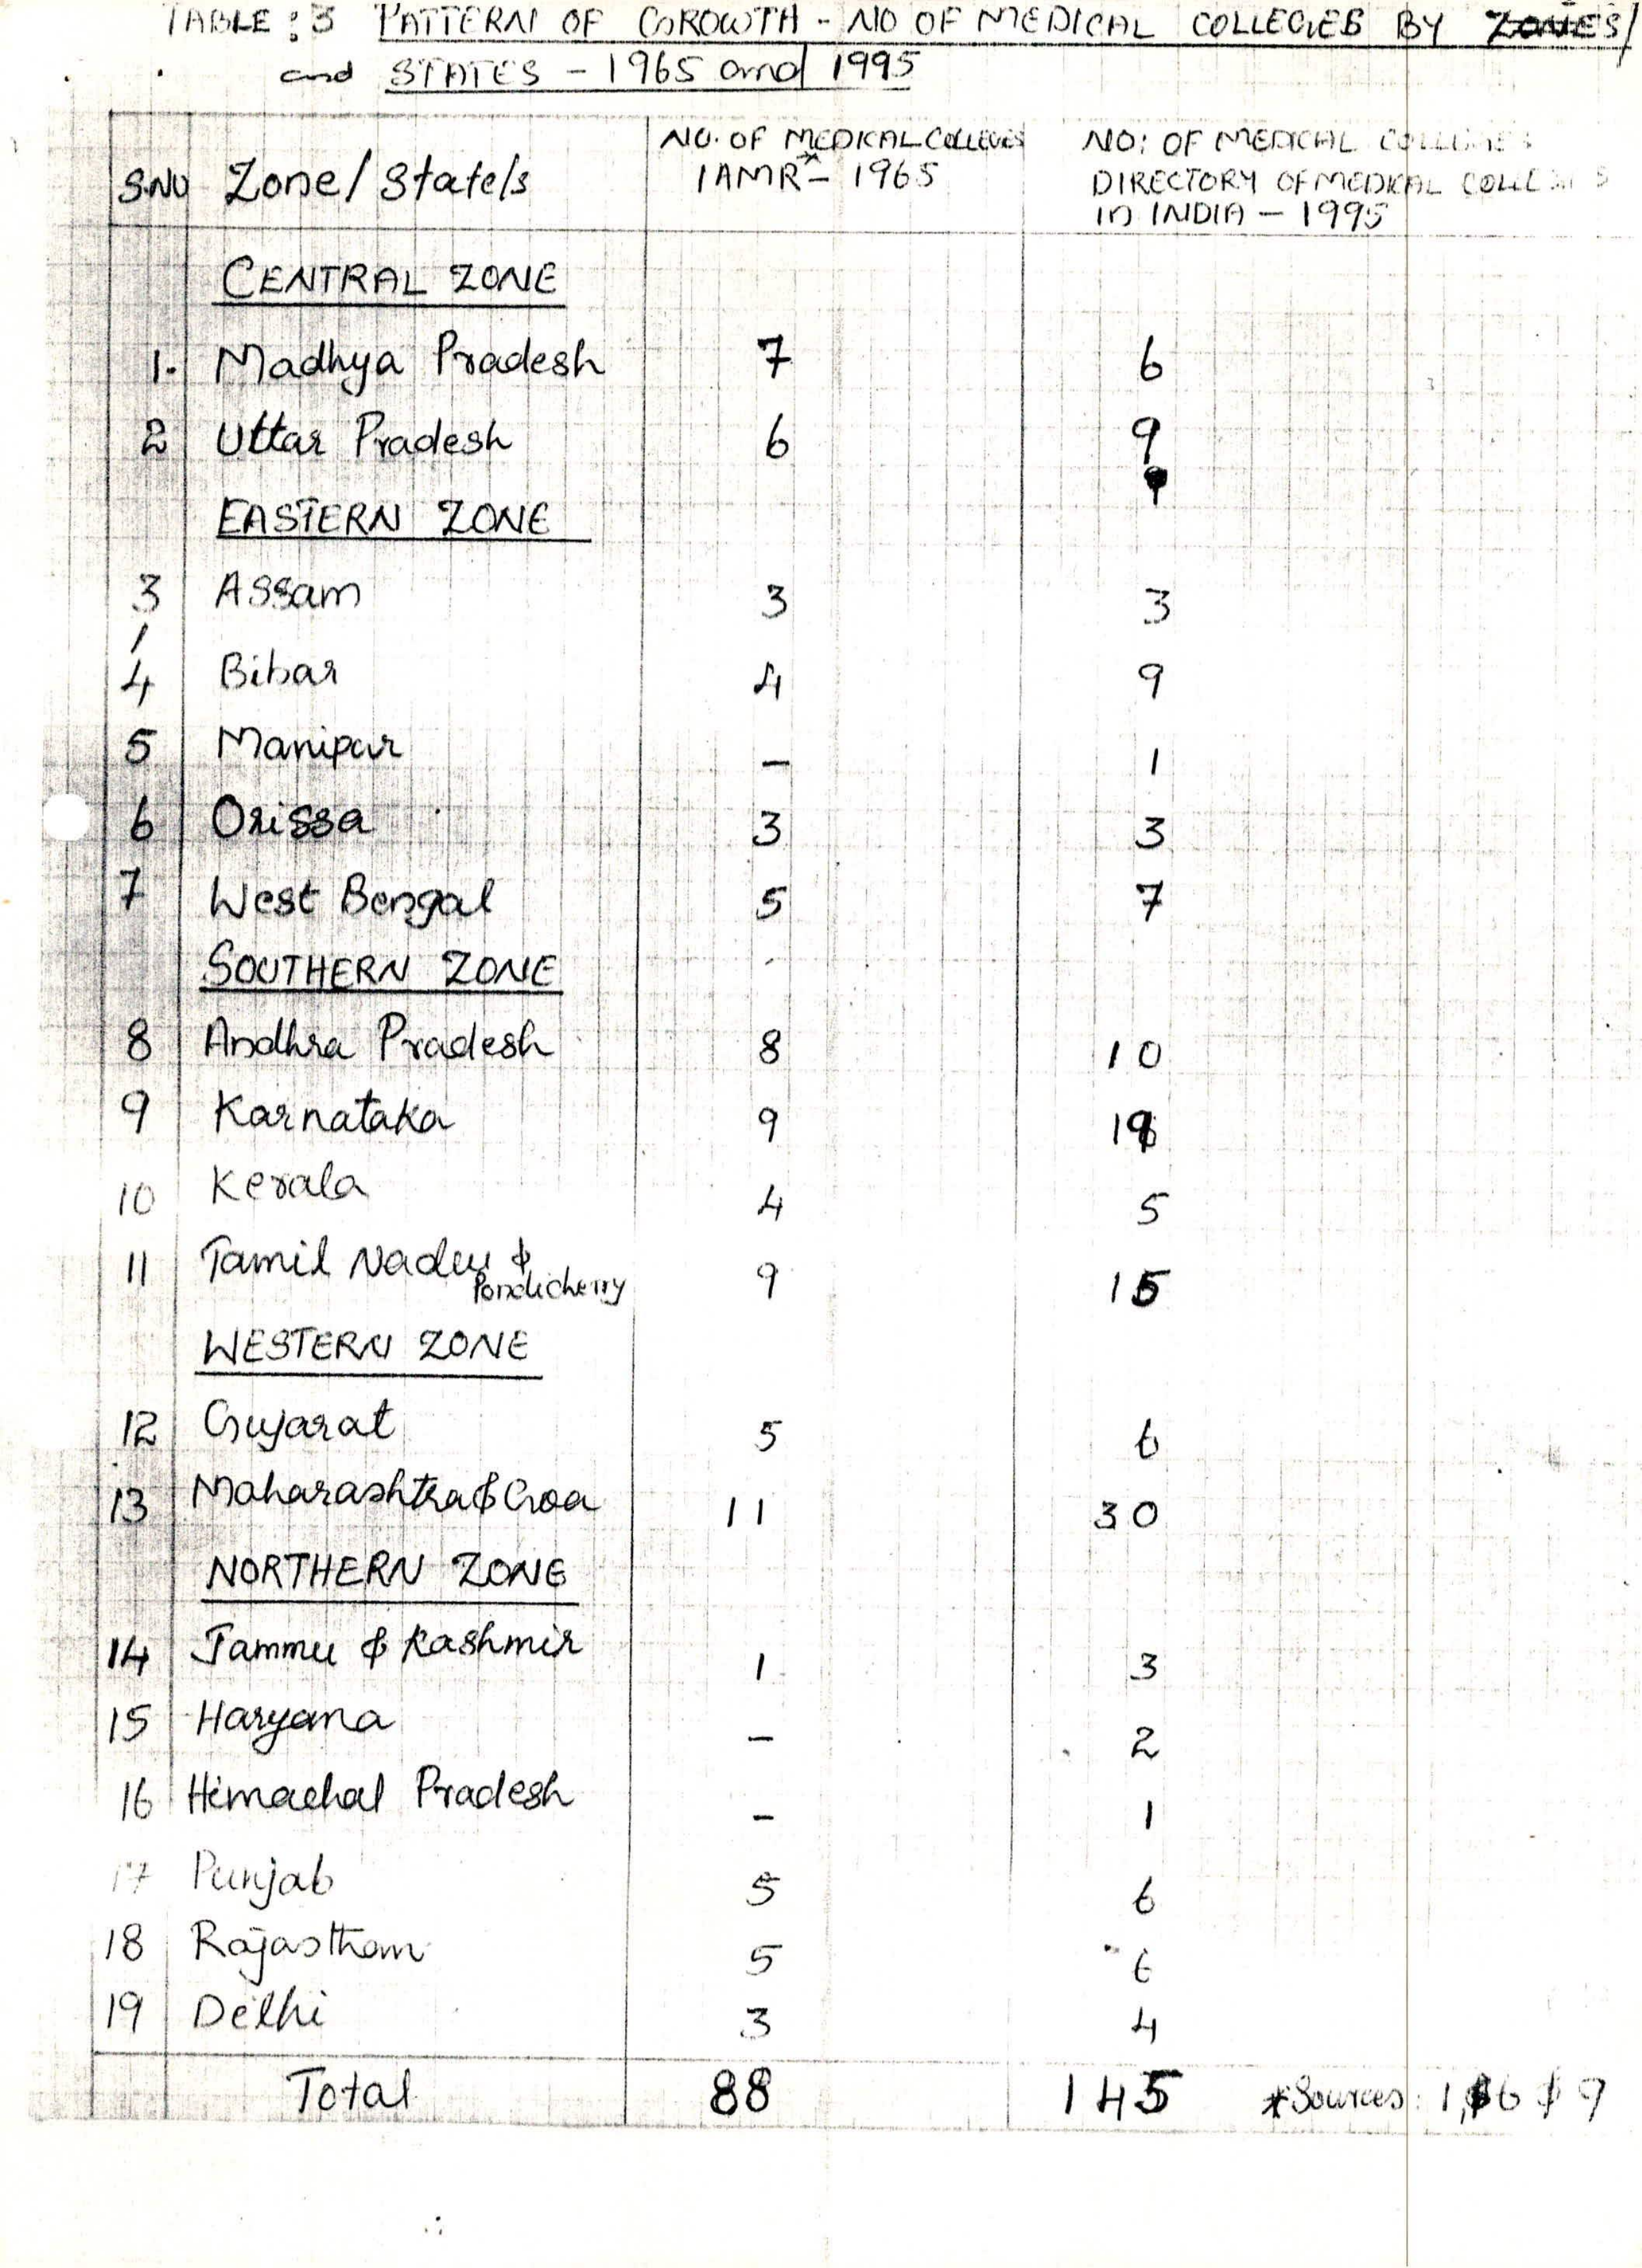 TABLE: 3 PATTERN OF GROWTH - NO OF MEDICAL COLLEGES BY ZONES/
and STATES - 1965 and 1995
S.NO Zone/State/s NO. OF MEDICAL COLLEGES IAMR* - 1965 NO: OF MEDICAL COLLEGES DIRECTORY OF MEDICAL COLLEGES in INDIA - 1995
CENTRAL ZONE
1. Madhya Pradesh 7 6
2 Uttar Pradesh 6 9
EASTERN ZONE
3 Assam 3 3
4 Bihar 4 9
5 Manipur - 1
6 Orissa 3 3
7 West Bengal 5 7
SOUTHERN ZONE
8 Andhra Pradesh 8 10
9 Karnataka 9 19
10 Kerala 4 5
11 Tamil Nadu & Pondicherry 9 15
WESTERN ZONE
12 Gujarat 5 6
13 Maharashtra & Goa 11 30
NORTHERN ZONE
14 Jammu & Kashmir 1 3
15 Haryana - 2
16 Himachal Pradesh - 1
17 Punjab 5 6
18 Rajasthan 5 6
19 Delhi 3 4
Total 88 145 *Sources: 1, 6 & 9